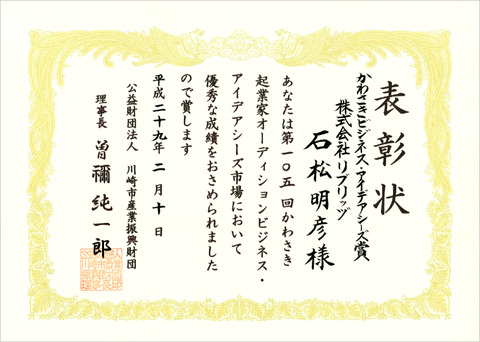 表彰状
かわさきビジネス・アイデアシーズ賞
株式会社リブリッヅ
石松明彦様
あなたは第一〇五回かわさき
起業家オーディションビジネス・
アイデアシーズ市場において
優秀な成績をおさめられました
ので賞します
平成二十九年二月十日
公益財団法人 川崎市産業振興財団
理事長 曽禰純一郎